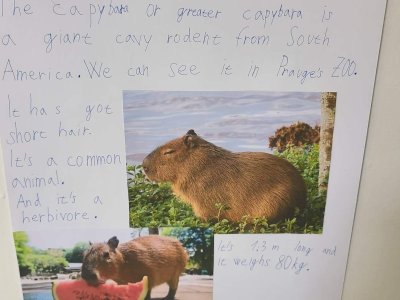 The capybara or greater capybara is
a giant cavy rodent from South
America. We can see it in Prauge's ZOO.
It has got
short hair.
It's a common
animal.
And it's a
herbivore.
It's 1.3 m long and
it weighs 80kg.